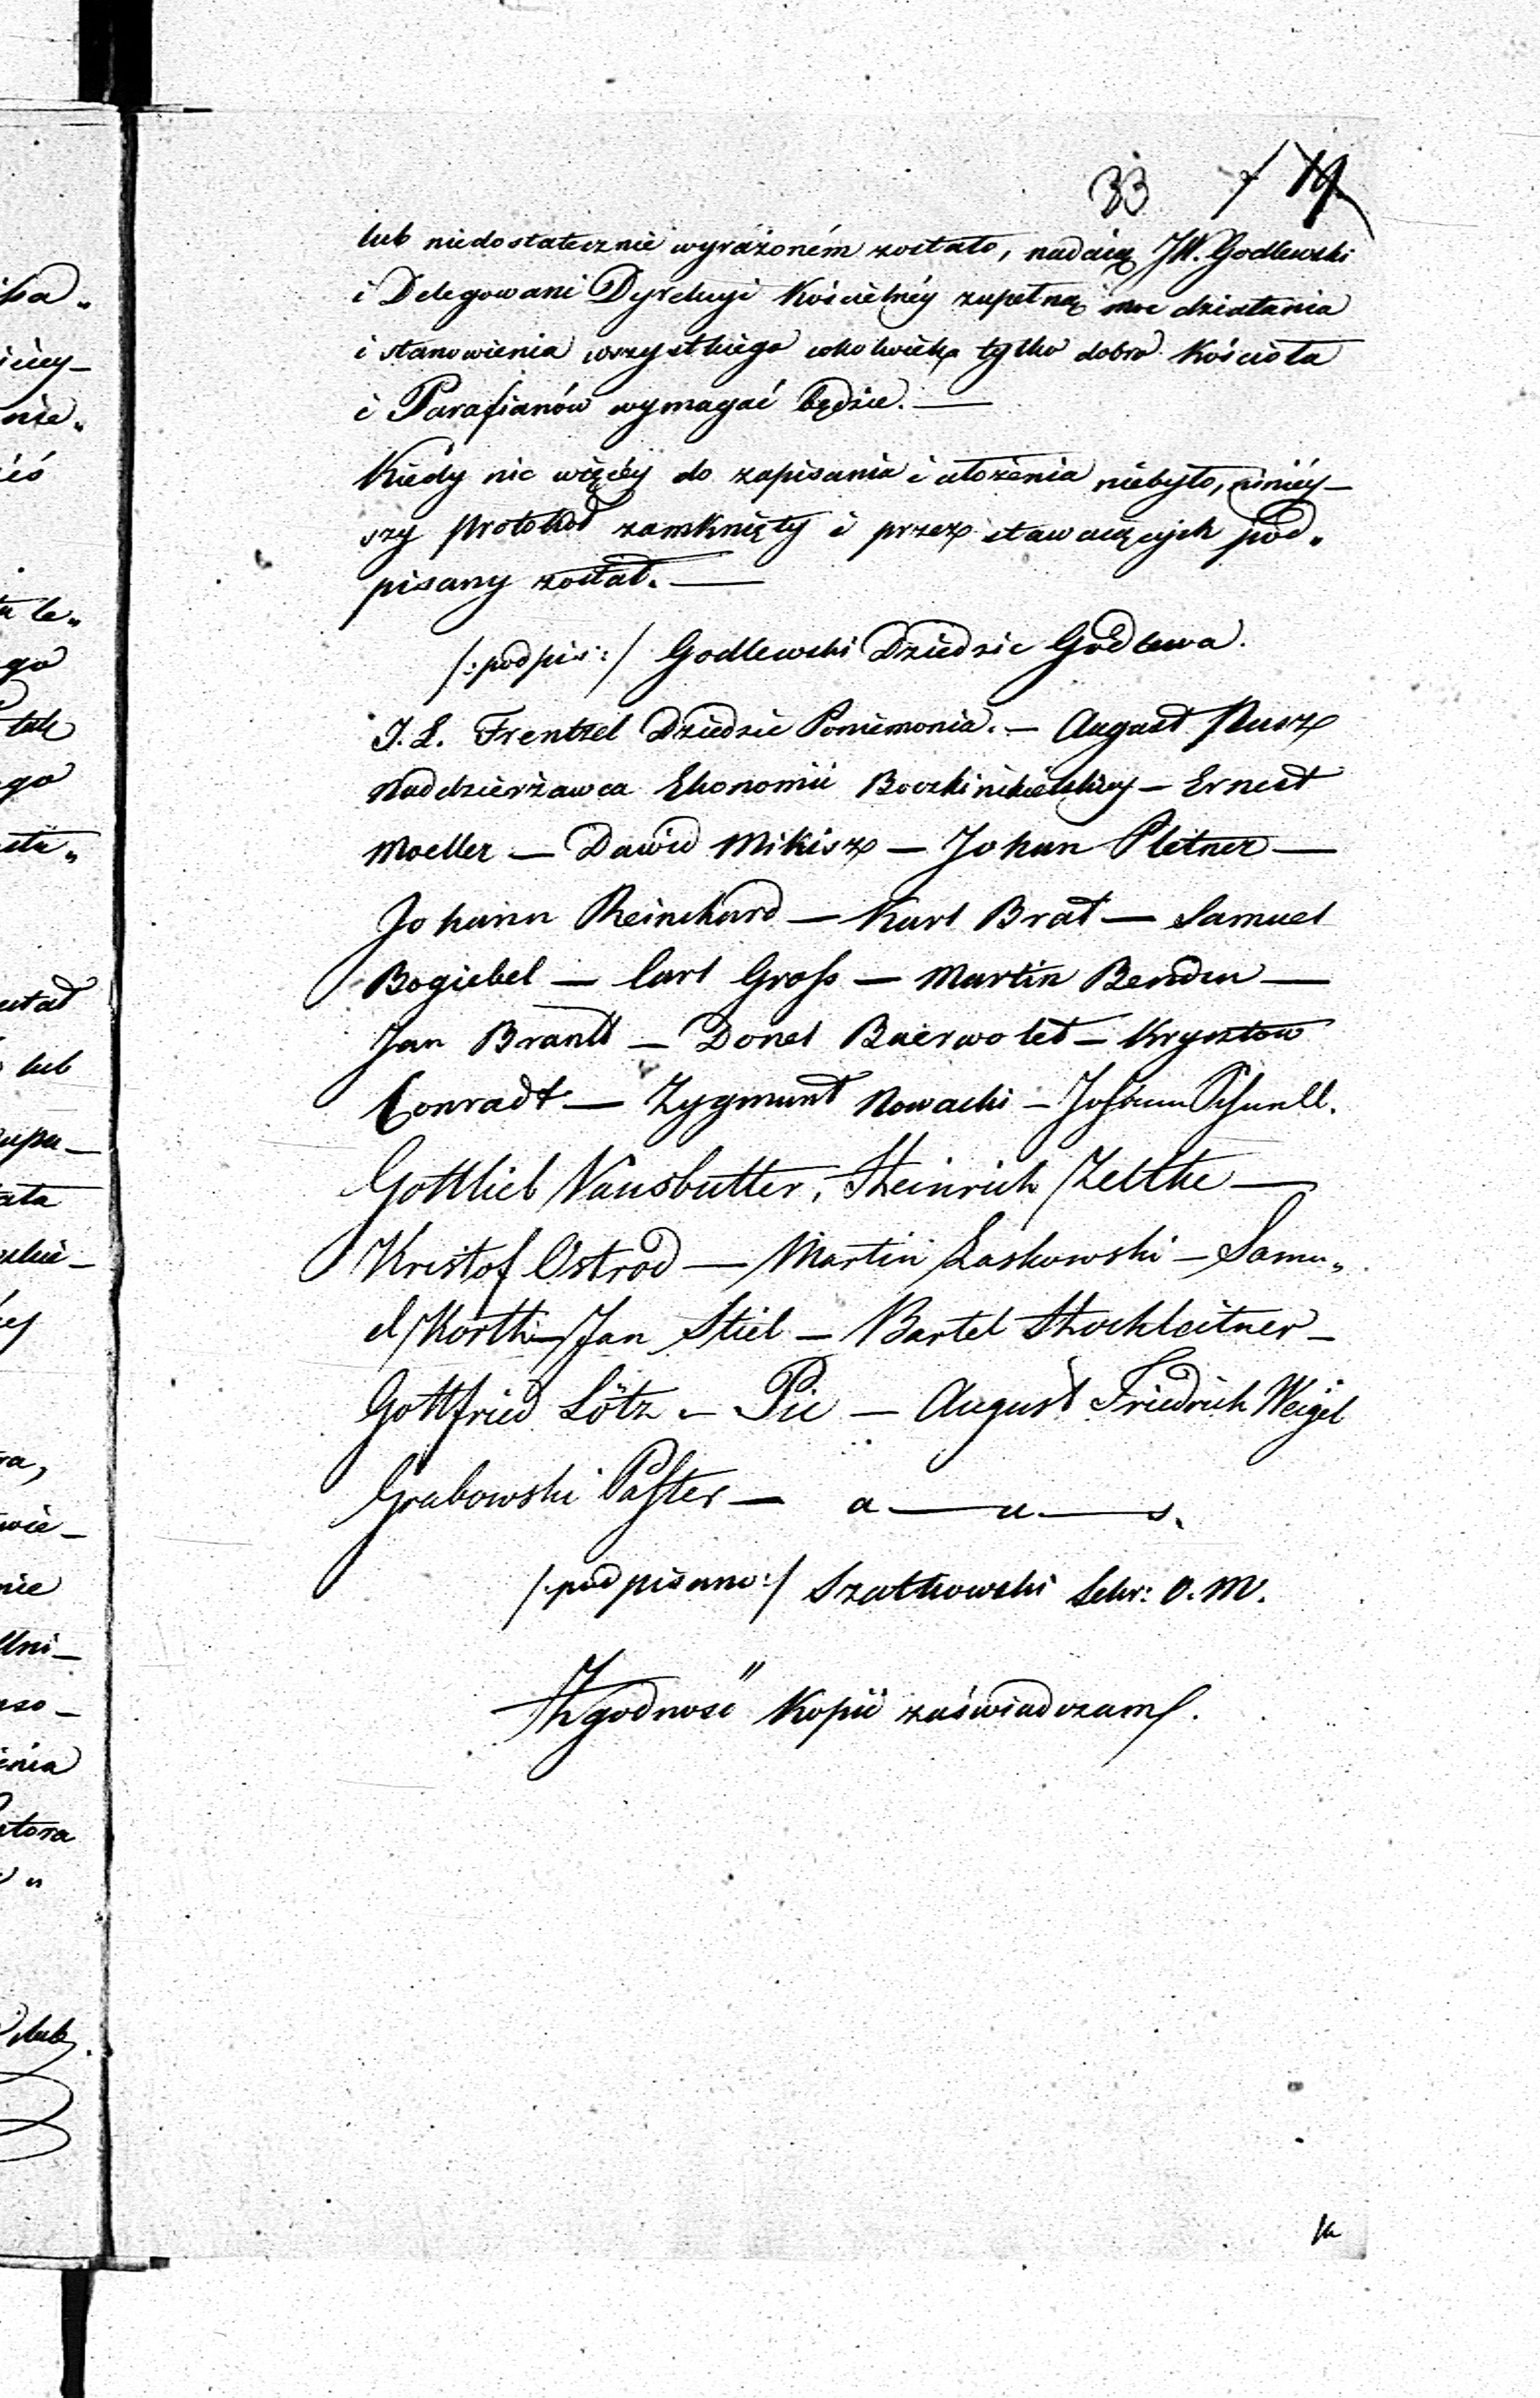 33 / 19
lub niedostatecznie wyrażoném zostało, nadaią JW. Godlewski
i Delegowani Dyrekcyi Kościelnéy zupełną moc działania
i stanowienia wszystkiego cokolwiek tylko dobro Kościoła
i Parafianów wymagać będzie. —
Kiedy nic więcéy do zapisania i ułożenia niebyło, niniéy—
szy Protokół zamknięty i przez stawaiących pod„
pisany został. —
/:podpis:/ Godlewski Dziedzic Godlewa.
J. L. Frentzel Dziedzic Poniemonia. — August
Naddzierżawca Ekonomii — Ernest
Moeller — Dawid Mikisz — Johan Pletner —
Johann Reinchard — Karl Brat — Samuel
Bogiebel — Carl Groß — Martin —
Jan Brantt — Donel — Krysztow
Conradt — Zygmunt Nowacki — Johann Schnell.
Gottlieb Nausbutter, Heinrich Zeltke —
Kristof Ostrod — Martin Laskowski — Samu„
el Korth — Jan Stiel — Bartel Stockleitner —
Gottfried Lötz — Pic — August Friedrich Weigel
Grabowski Paster — a — u — s.
/:podpisano:/ Szatkowski Sekr: O. M.
Zgodność Kopii zaświadczam.